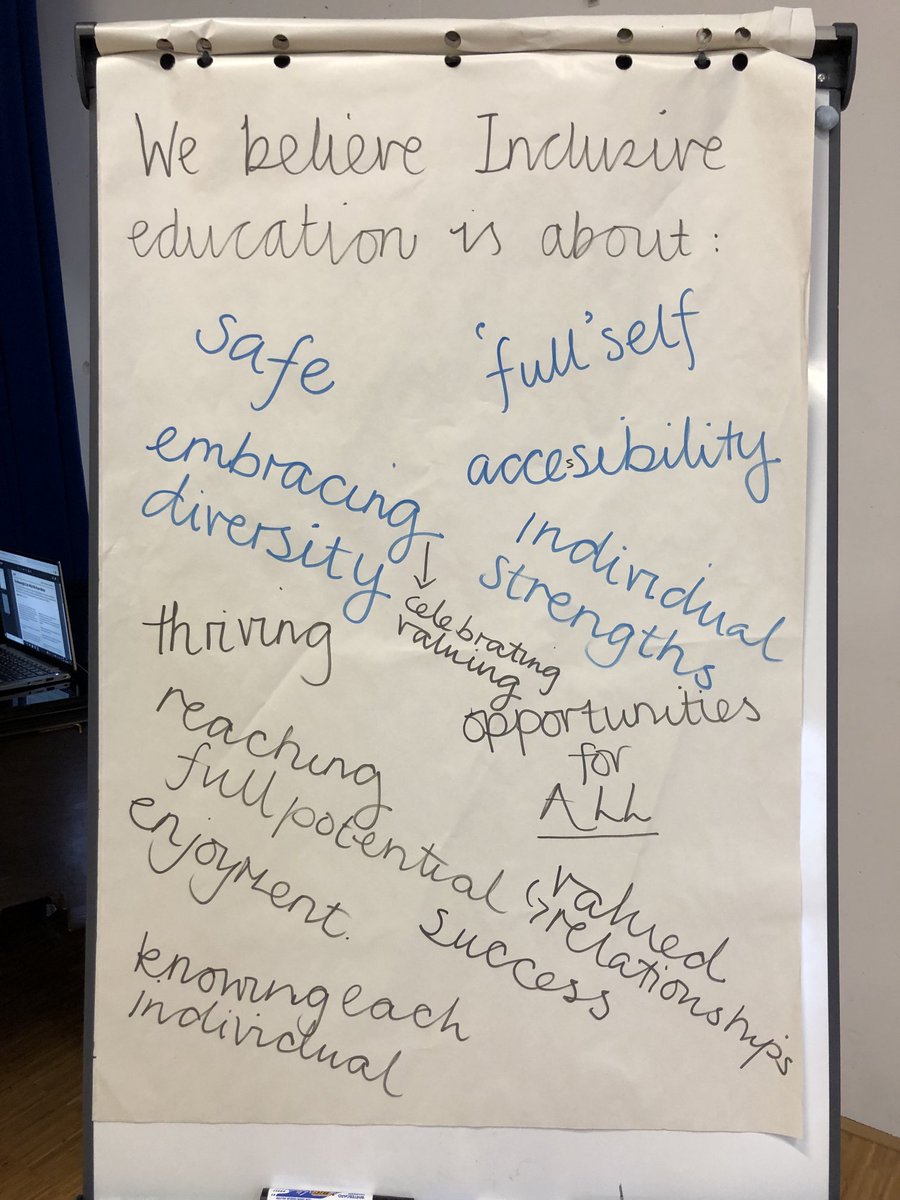 We believe Inclusive
education is about:
safe
'full' self
embracing
diversity
accessibility
Individual
strengths
celebrating
valuing
thriving
opportunities
for
ALL
reaching
full potential
enjoyment.
valued
relationships
success
knowing each
individual